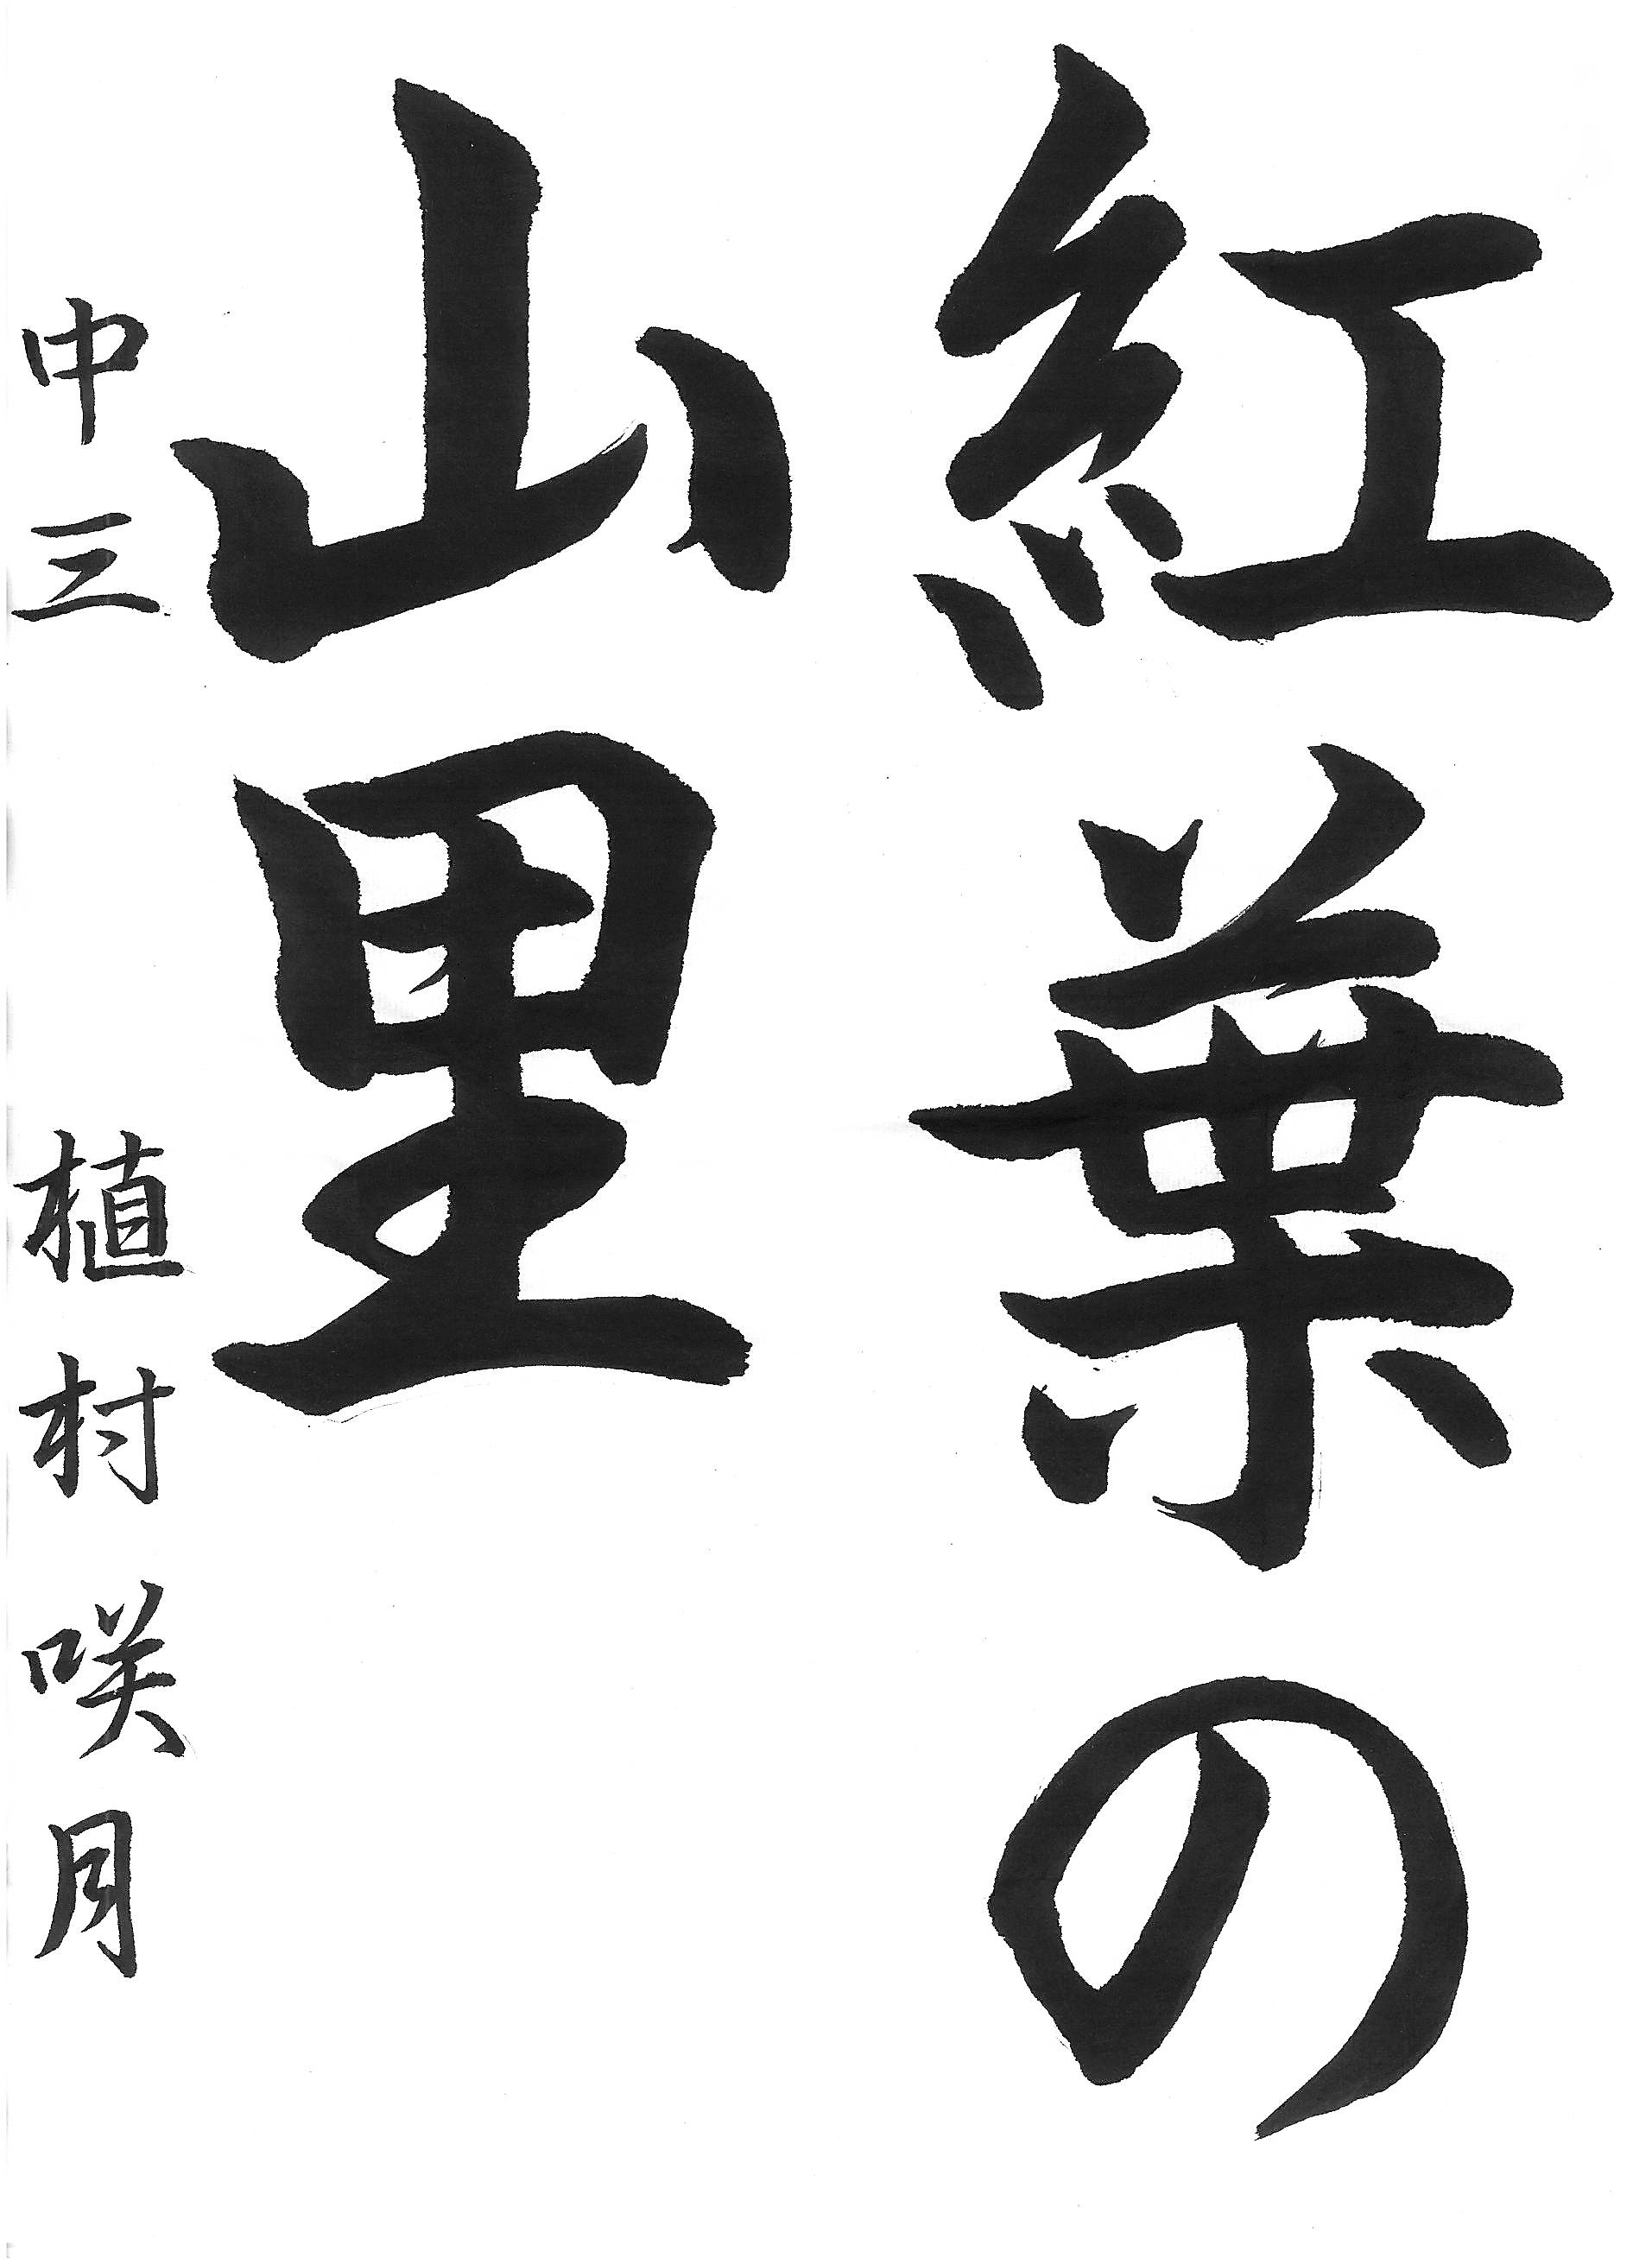 紅葉の
山里
中三 植村咲月